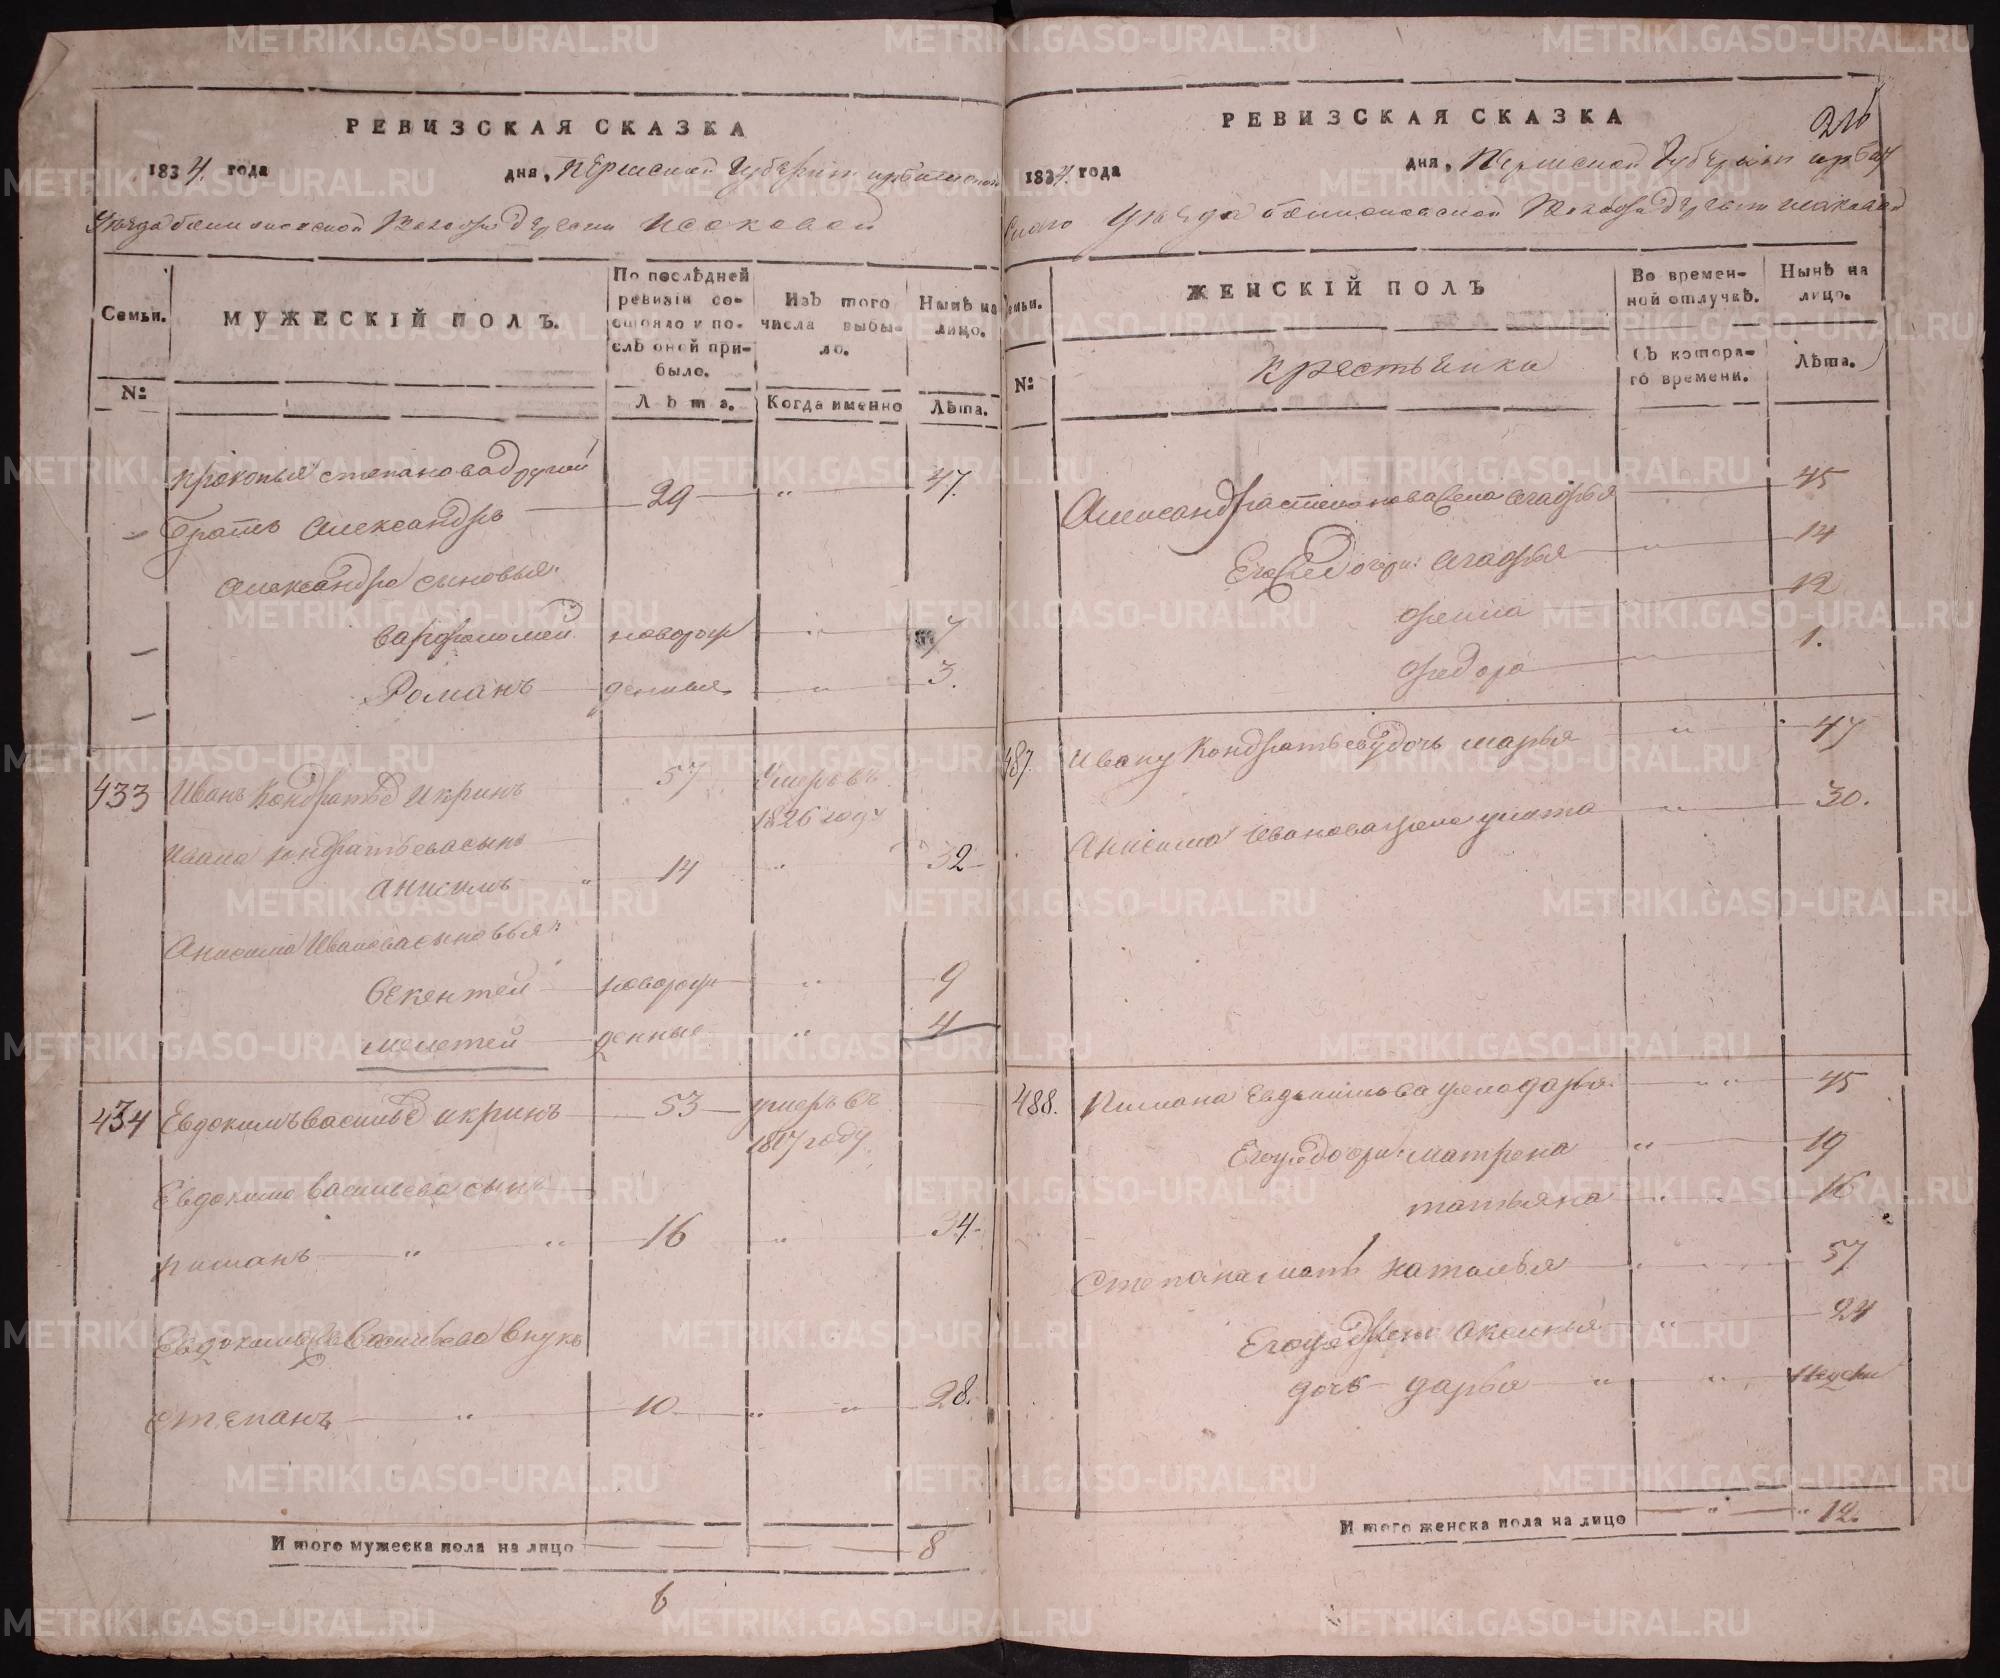 РЕВИЗСКАЯ СКАЗКА
1834. года дня, Пермской Губернии Ирбитской
Уезда Волости деревни Исаковой
Семьи.
МУЖЕСКІЙ ПОЛЪ.
По послѣдней ревизіи состояло и послѣ оной прибыло.
Изъ того числа выбыло.
Нынѣ на лицо.
№
Лѣта.
Когда именно
Лѣта.
Прокопья Степанова другой
братъ Александръ 29 " 47.
Александра сыновья:
Варфоломей новорож " 7
Романъ денныя " 3.
433 Иванъ Кондратьев Икринъ 57 умеръ въ
1826 году
Ивана Кондратьева сынъ
Анисимъ " 14 " 32
Анисима Иванова сыновья:
Векентей новорож " 9
Мелетей денныя " 4
434 Евдокимъ Васильев Икринъ 53 умеръ въ
1817 году
Евдокима Васильева сынъ
Пиманъ " " 16 " 34.
Евдокима Васильева внукъ
Степанъ " 10 " " 28.
Итого мужеска пола на лицо 8
6
РЕВИЗСКАЯ СКАЗКА
216
1834. года дня, Пермской Губернии Ирбит
скаго Уезда Волости деревни Исаковой
Семьи.
ЖЕНСКІЙ ПОЛЪ
Во временной отлучкѣ.
Нынѣ на лицо.
№
Крестьянка
Съ котораго времени.
Лѣта.
Александра Степанова жена Агафья 45
Его дочери: Агафья " 14
Фекла 12
Федора " 1.
487. Ивану Кондратьеву дочь Марья " 47
Анисима Иванова жена Улита " 30.
488. Пимана Евдокимова жена Дарья " " 45
Его дочери: Матрена " 19
Татьяна " " 16
Степана мать Наталья 57
Его жена Аксинья " 24
дочь Дарья " "
Итого женска пола на лицо " " 12.
METRIKI.GASO-URAL.RU